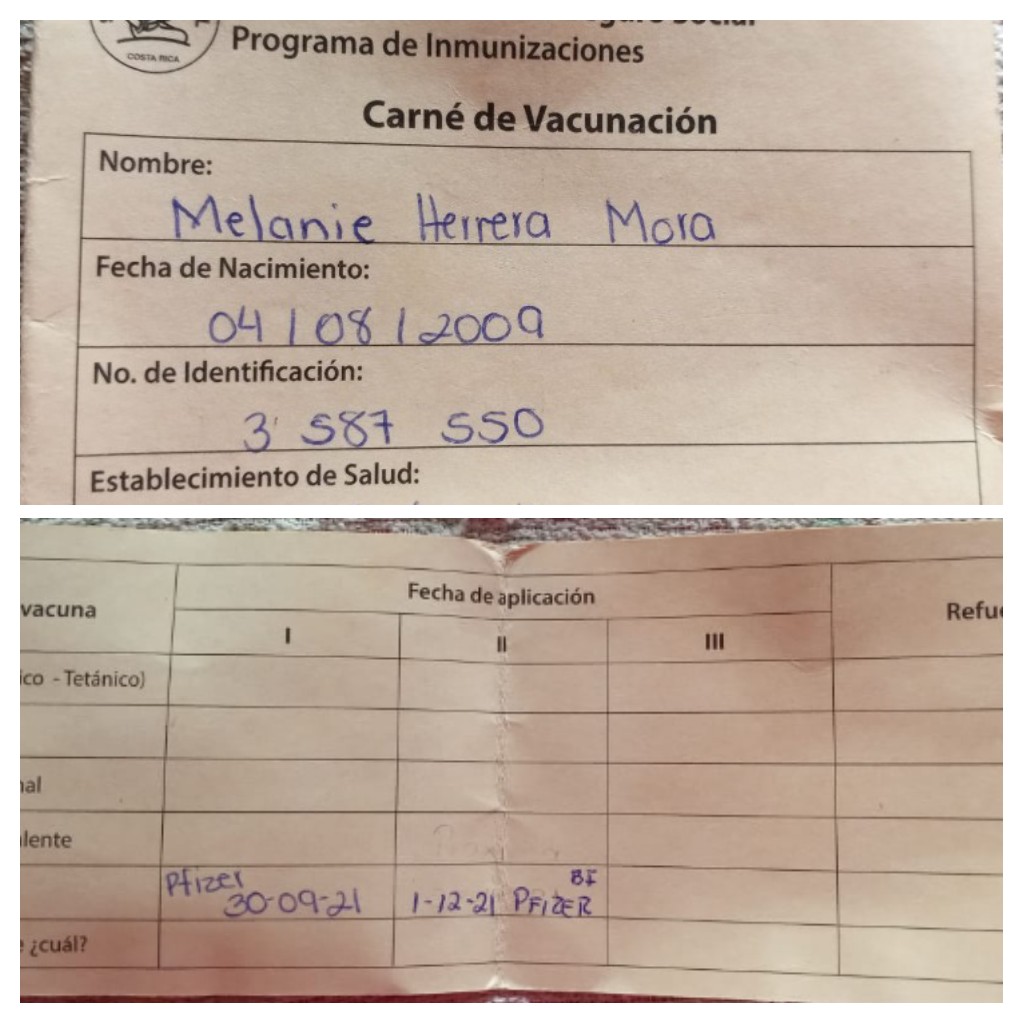 Seguro Social
COSTA RICA
Programa de Inmunizaciones
Carné de Vacunación
Nombre:
Melanie Herrera Mora
Fecha de Nacimiento:
04/08/2009
No. de Identificación:
3 587 550
Establecimiento de Salud:
vacuna
Fecha de aplicación
Refue
I
II
III
ico - Tetánico)
nal
lente
Pfizer
30-09-21
BI
1-12-21 PFIZER
¿cuál?